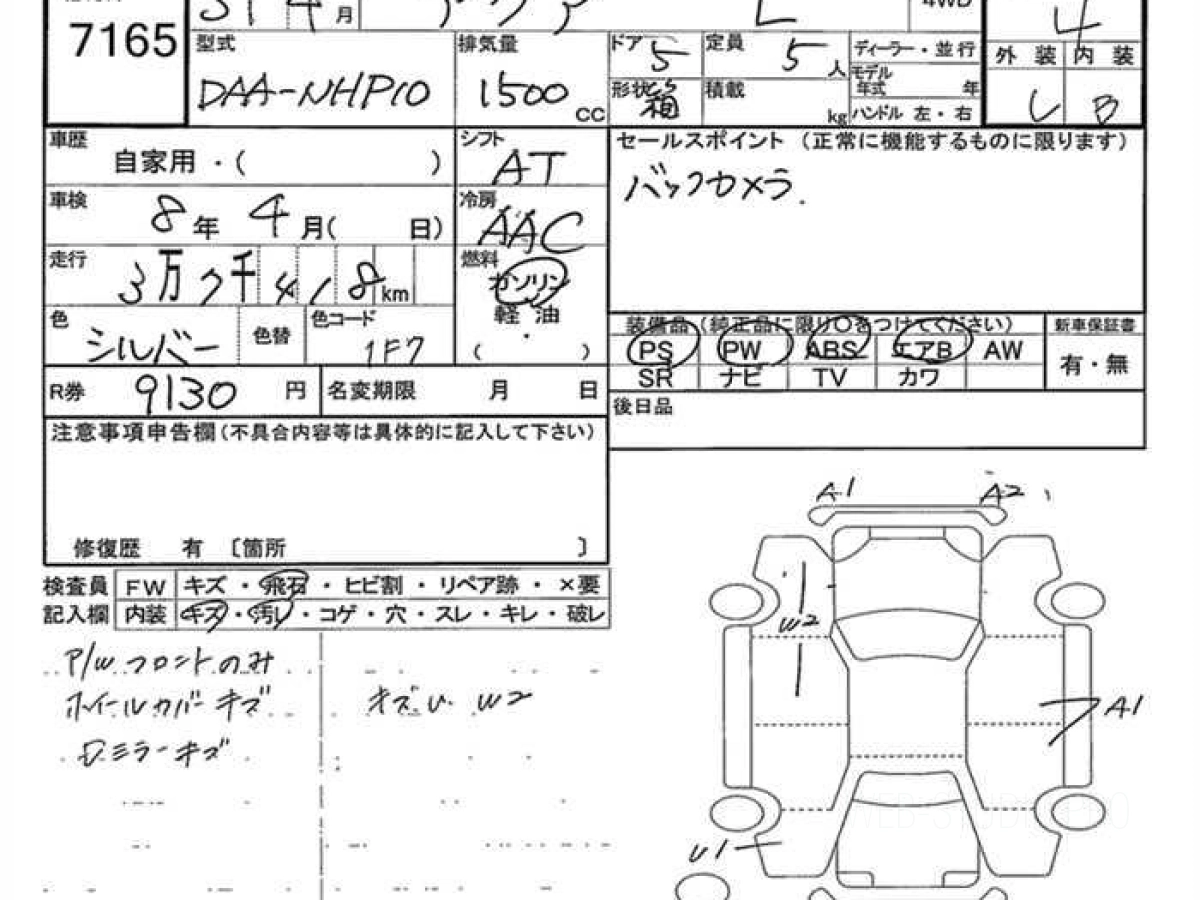 7165
31 4 月 アクア L 4WD 4
型式 DAA-NHP10
排気量 1500 CC
ドア 5 定員 5 人
形状 箱 積載 kg
ディーラー・並行
モデル年式 年
ハンドル 左・右
外装 内装
B
車歴 自家用・( )
シフト AT
車検 8年 4月( 日)
冷房 AAC
走行 3万7千418km
燃料 ガソリン 軽油 ( ・ )
色 シルバー 色替 色コード 1F7
R券 9130 円 名変期限 月 日
セールスポイント (正常に機能するものに限ります)
バックカメラ.
装備品(純正品に限り○をつけてください) 新車保証書
PS PW ABS エアB AW 有・無
SR ナビ TV カワ
後日品
注意事項申告欄(不具合内容等は具体的に記入して下さい)
修復歴 有 〔箇所 〕
検査員 FW キズ・飛石・ヒビ割・リペア跡・×要
記入欄 内装 キズ・汚レ・コゲ・穴・スレ・キレ・破レ
P/W フロントのみ
ホイールカバーキズ キズU W2
Dミラーキズ
A1 A2
W2
A1
U1